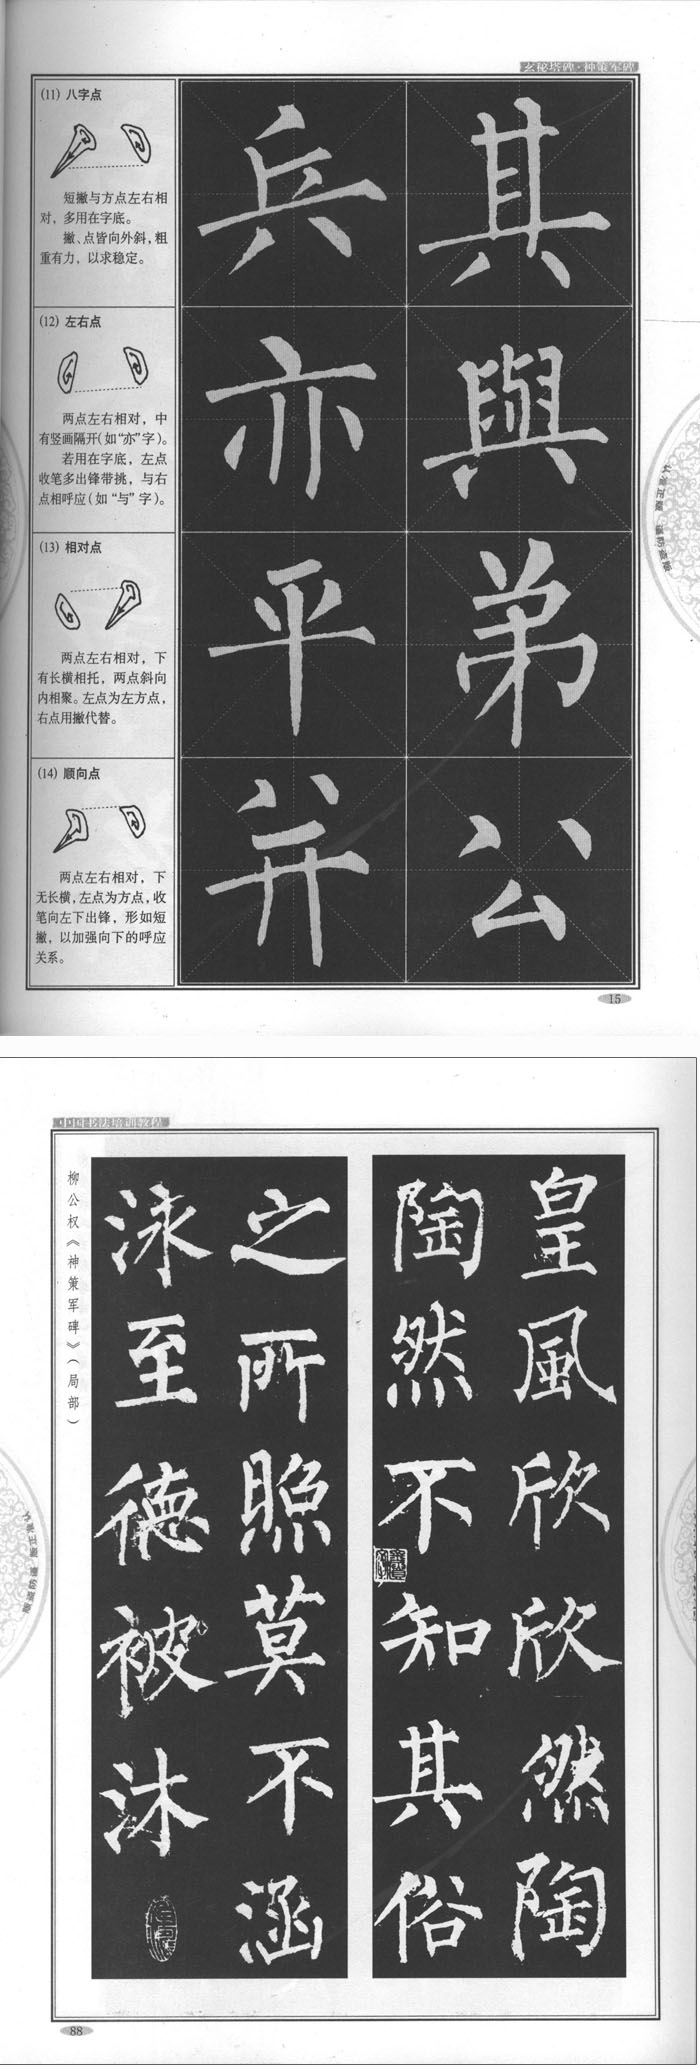 玄秘塔碑·神策军碑
(11) 八字点
短撇与方点左右相
对，多用在字底。
撇、点皆向外斜，粗
重有力，以求稳定。
兵 其
(12) 左右点
两点左右相对，中
有竖画隔开(如“亦”字)。
若用在字底，左点
收笔多出锋带挑，与右
点相呼应(如“与”字)。
亦 與
(13) 相对点
两点左右相对，下
有长横相托，两点斜向
内相聚。左点为左方点，
右点用撇代替。
平 弟
(14) 顺向点
两点左右相对，下
无长横，左点为方点，收
笔向左下出锋，形如短
撇，以加强向下的呼应
关系。
并 公
15
中国书法培训教程
皇風欣欣然陶
陶然不知其俗
之所照莫不涵
泳至德被沐
柳公权《神策军碑》(局部)
88